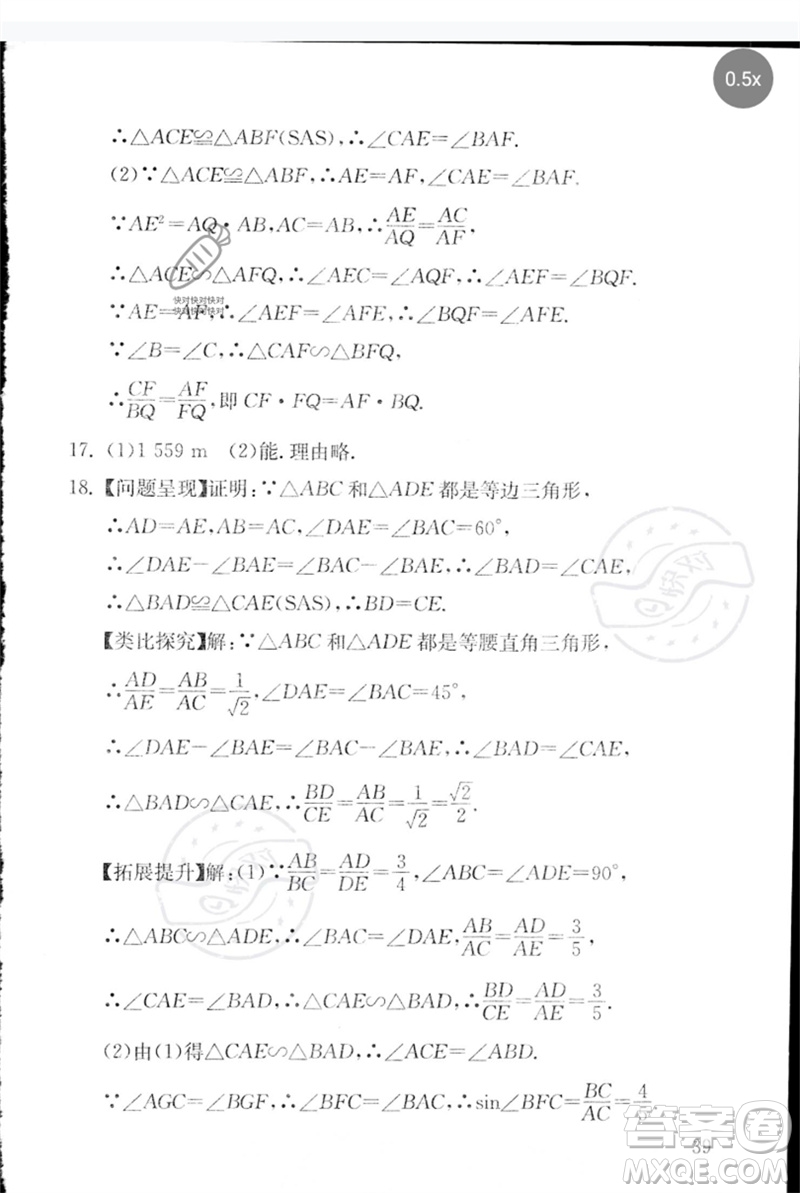 0.5x
∴△ACE≌△ABF(SAS),∴∠CAE=∠BAF.
(2)∵△ACE≌△ABF,∴AE=AF,∠CAE=∠BAF.
∵AE²=AQ·AB,AC=AB,∴AE/AQ=AC/AF,
∴△ACE∽△AFQ,∴∠AEC=∠AQF,∴∠AEF=∠BQF.
∵AE=AF,∴∠AEF=∠AFE,∴∠BQF=∠AFE.
快对快对快对
快对快对快对
∵∠B=∠C,∴△CAF∽△BFQ,
∴CF/BQ=AF/FQ,即 CF·FQ=AF·BQ.
17. (1)1 559 m (2)能.理由略.
18.【问题呈现】证明:∵△ABC 和△ADE 都是等边三角形,
∴AD=AE,AB=AC,∠DAE=∠BAC=60°,
∴∠DAE-∠BAE=∠BAC-∠BAE,∴∠BAD=∠CAE,
∴△BAD≌△CAE(SAS),∴BD=CE.
快对
【类比探究】解:∵△ABC 和△ADE 都是等腰直角三角形,
∴AD/AE=AB/AC=1/√2,∠DAE=∠BAC=45°,
∴∠DAE-∠BAE=∠BAC-∠BAE,∴∠BAD=∠CAE,
∴△BAD∽△CAE,∴BD/CE=AB/AC=1/√2=√2/2.
【拓展提升】解:(1)∵AB/BC=AD/DE=3/4,∠ABC=∠ADE=90°,
∴△ABC∽△ADE,∴∠BAC=∠DAE,AB/AC=AD/AE=3/5,
∴∠CAE=∠BAD,∴△CAE∽△BAD,∴BD/CE=AD/AE=3/5.
(2)由(1)得△CAE∽△BAD,∴∠ACE=∠ABD.
∵∠AGC=∠BGF,∴∠BFC=∠BAC,∴sin∠BFC=BC/AC=4/5.
答案圈
39
MXQE.COM